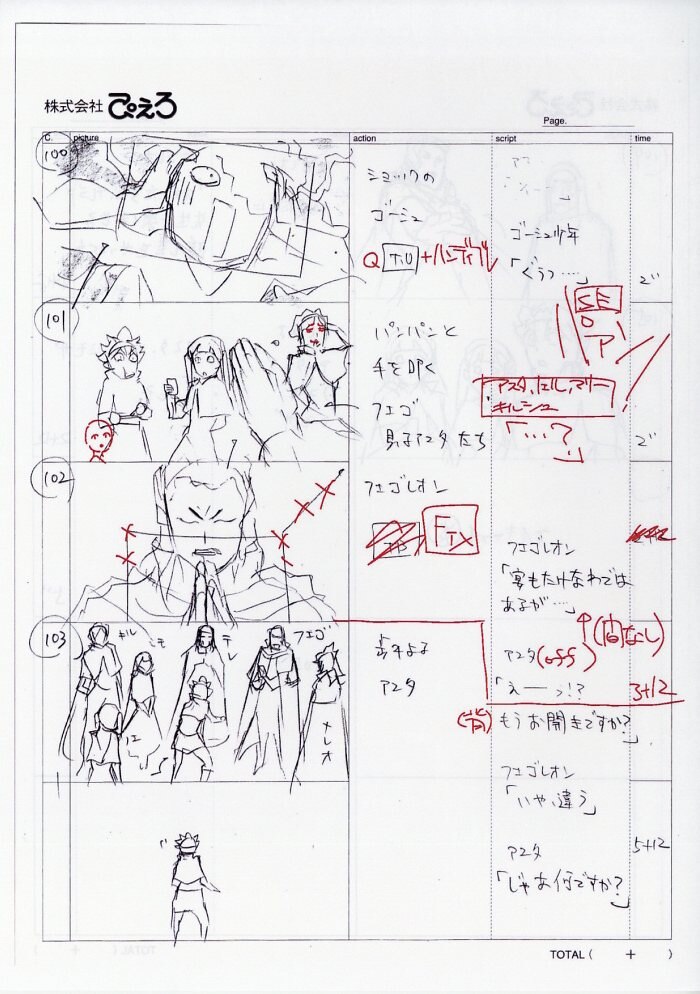 株式会社 ぴえろ
Page.
C. picture action script time
100
ショックの
ゴーシュ
Q T.U +ハンディブレ
ゴーシュ少年
「ぐうっ……」
2"
101
パンパンと
手を叩く
フエゴ
見るアスタたち
SE
キルシュ
「…?」
2"
102
フエゴレオン
FIX
フエゴレオン
「宴もたけなわでは
あるが…」
↑(間なし)
アスタ(off)
「えーっ!?
3+12
103
キル
ミモ
テレ
フエゴ
メレオ
アスタ
もうお開きですか?」
フエゴレオン
「いや、違う」
アスタ
「じゃあ何ですか?」
5+12
TOTAL ( + )